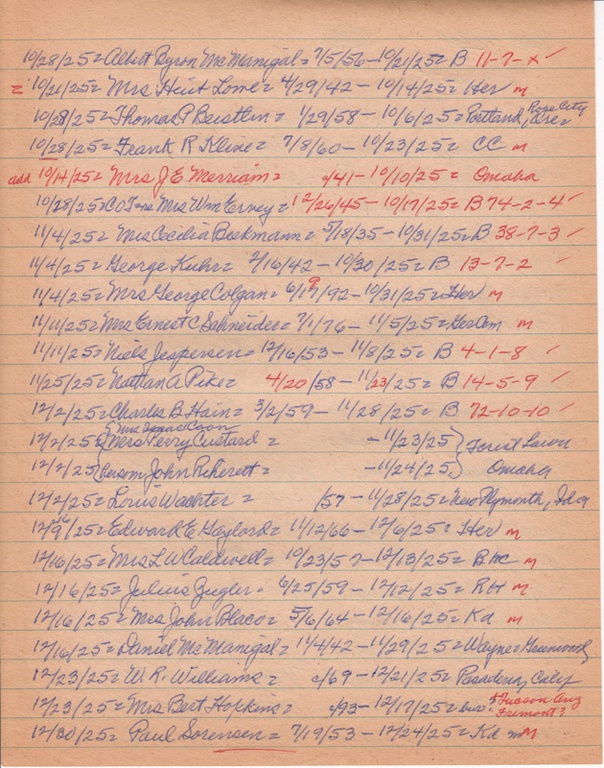 10/28/25 = Albert Byron McManigal = 7/5/56 - 10/21/25 = B 11-7-x ✓
= 10/21/25 = Mrs Hiet Lowe = 4/29/42 - 10/14/25 = Her m
10/28/25 = Thomas P Beistlin = 1/29/58 - 10/6/25 = Portland, Ore Rose City
10/28/25 = Frank R Kline = 7/8/60 - 10/23/25 = CC m
add 10/14/25 = Mrs J E Merriam = c/41 - 10/10/25 = Omaha
10/28/25 = Mrs Wm Erney = 12/26/45 - 10/17/25 = B 74-2-4 ✓
11/4/25 = Mrs Cecilia Beekmann = 5/18/35 - 10/31/25 = B 38-7-3 ✓
11/4/25 = George Kuhr = 2/16/42 - 10/30/25 = B 13-7-2 ✓
11/4/25 = Mrs George Colgan = 6/19/92 - 10/31/25 = Her m
11/11/25 = Mrs Ernest C Schneider = 7/1/76 - 11/5/25 = GerCem m
11/11/25 = Niels Jespersen = 12/16/53 - 11/8/25 = B 4-1-8 ✓
11/25/25 = Nathan A Pike = 4/20/58 - 11/23/25 = B 14-5-9 ✓
12/2/25 = Charles B Hain = 3/2/59 - 11/28/25 = B 72-10-10 ✓
Mrs Isaac Coon
12/2/25 { Mrs Perry Custard = - 11/23/25 } Forest Lawn
12/2/25 { John Rickerett = - 11/24/25 } Omaha
12/2/25 = Louis Wachter = /57 - 11/28/25 = New Plymouth, Ida
12/9/25 = Edward E Gaylord = 11/12/66 - 12/6/25 = Her m
12/16/25 = Mrs L W Caldwell = 10/23/57 - 12/13/25 = B m
12/16/25 = Julius Zugler = 6/25/59 - 12/12/25 = RH m
12/16/25 = Mrs John Blaco = 5/6/64 - 12/16/25 = Ka m
12/16/25 = Daniel McManigal = 11/4/42 - 11/29/25 = Wayne = Greenwood
12/23/25 = W. R. Williams = c/69 - 12/21/25 = Pasadena, Calif
12/23/25 = Mrs Bert Hopkins = c/93 - 12/17/25 = Tucson Ariz
Fremont?
12/30/25 = Paul Sorensen = 7/19/53 - 12/24/25 = Ka m